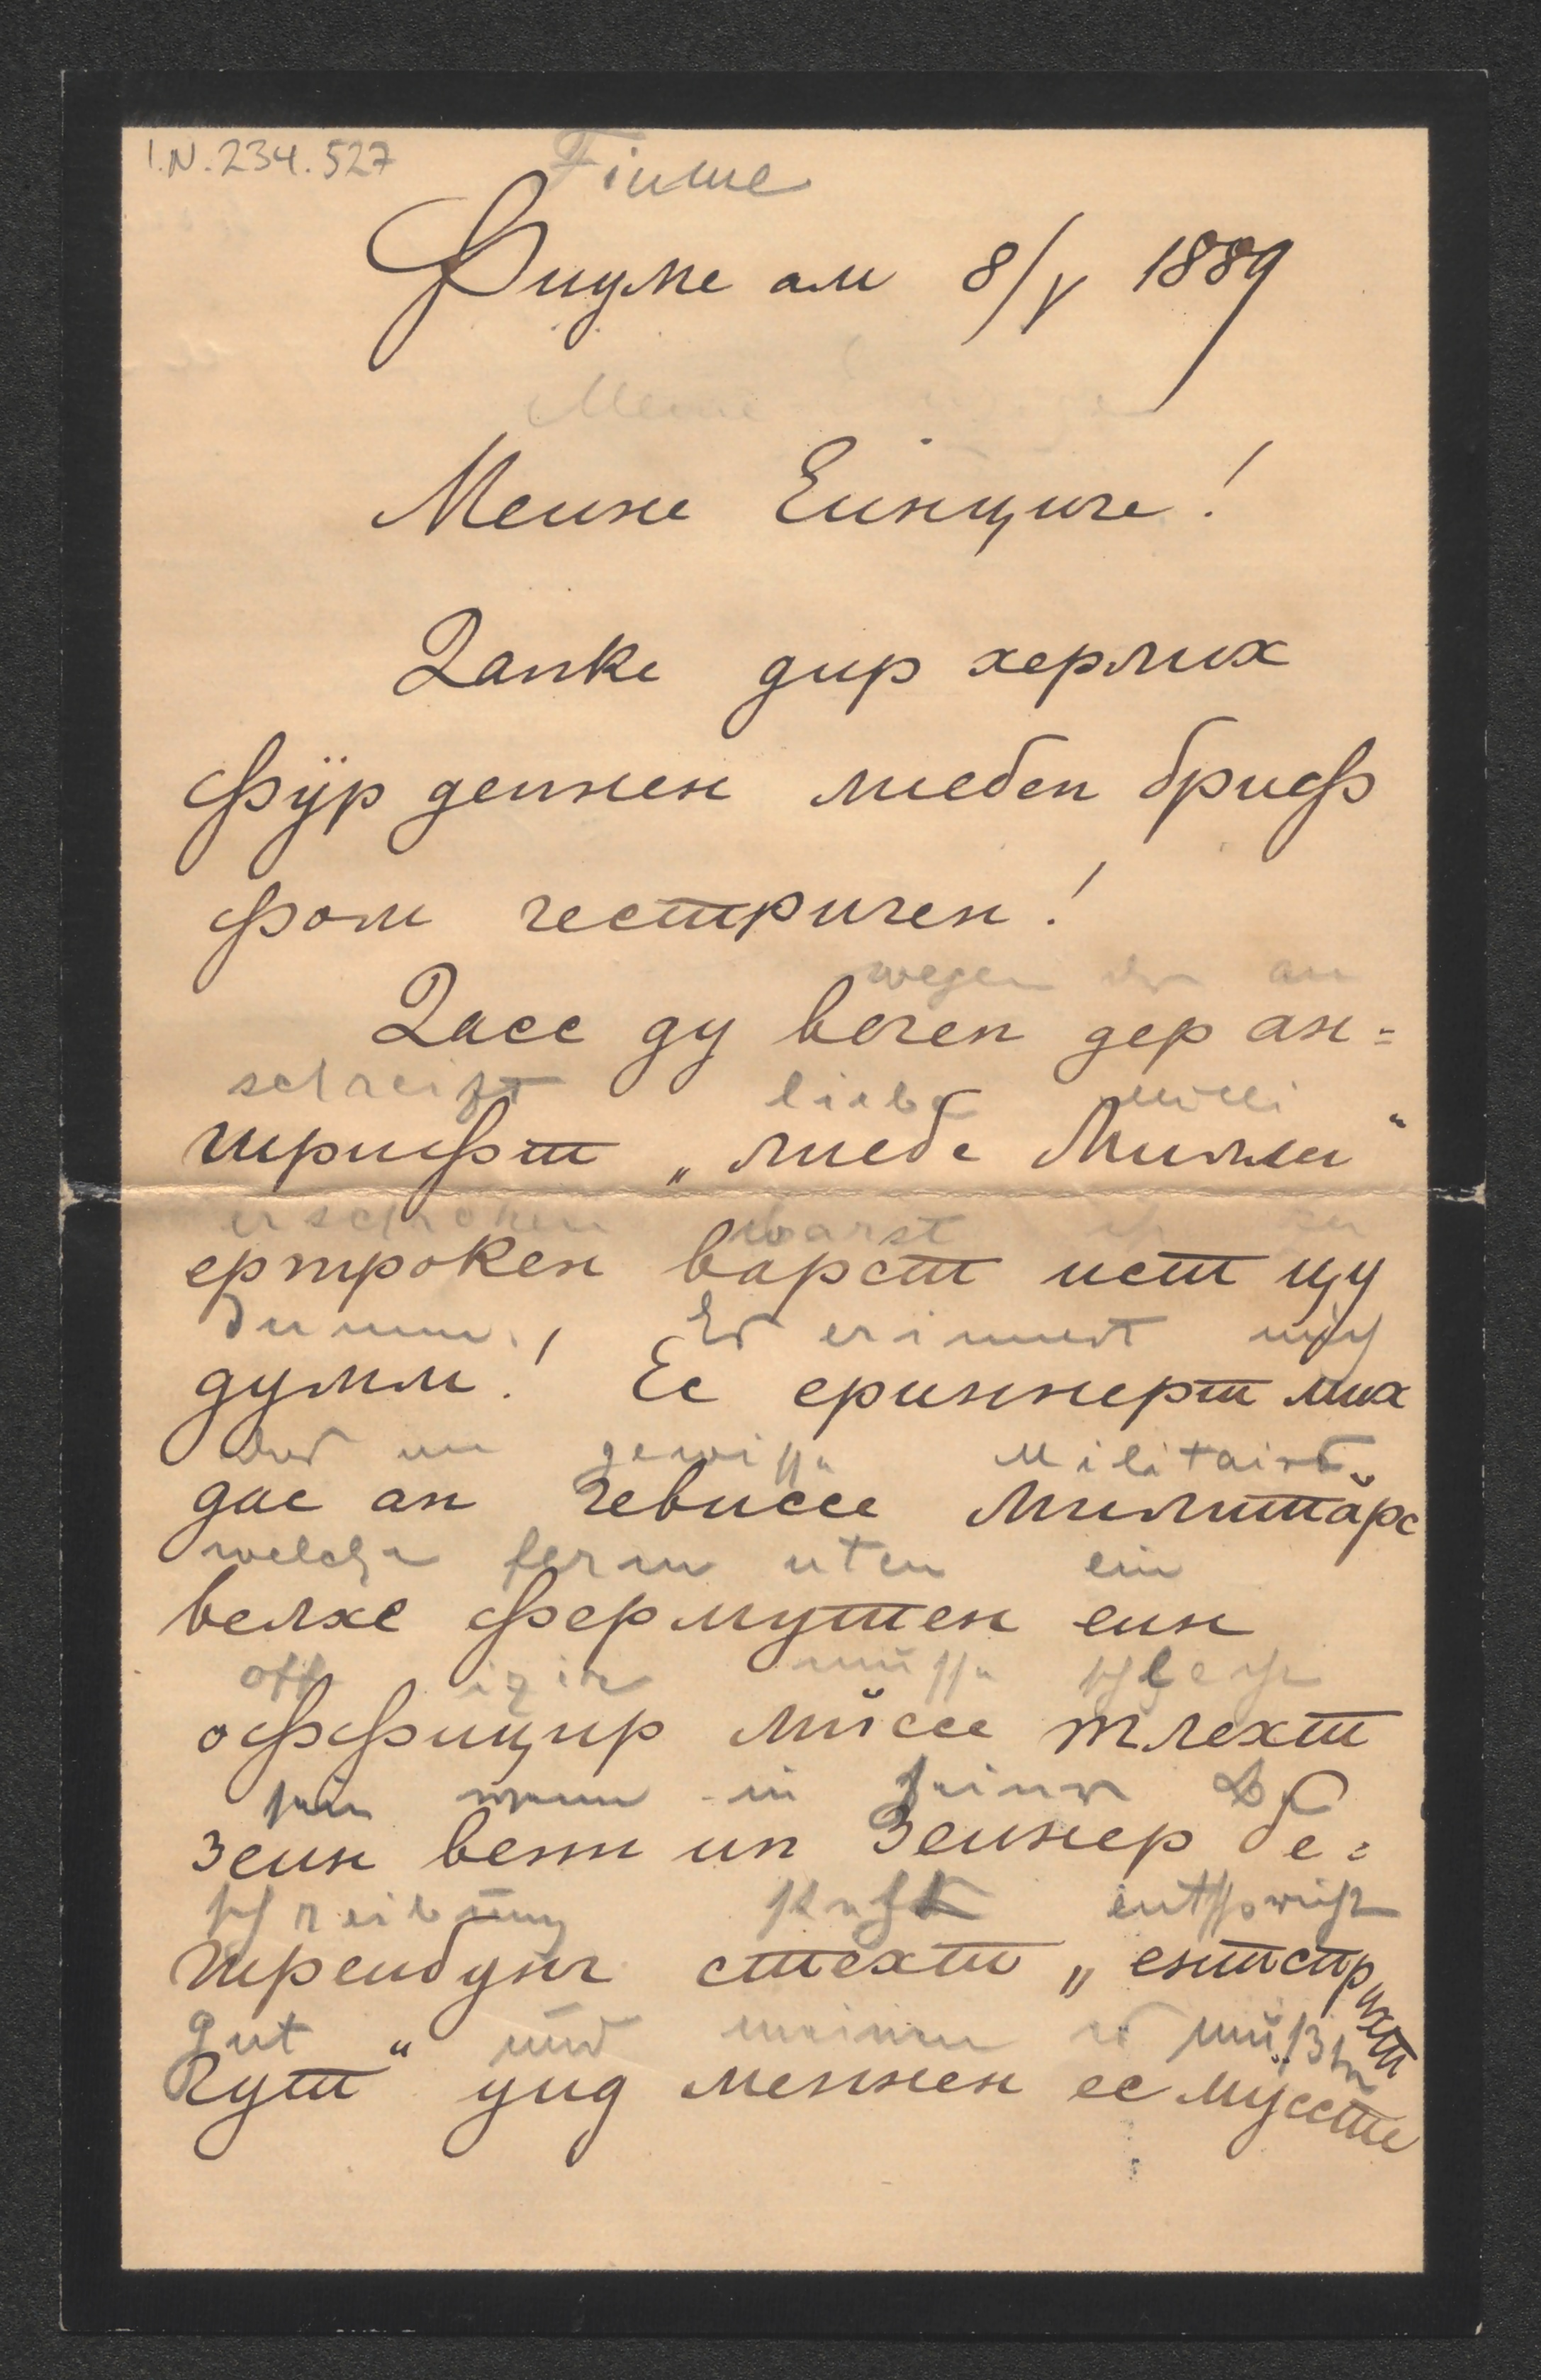 I.N. 234.527
Fiume
Фиуме ам 8/V 1889
Меине
Меине Еинциге!
Данке дир херлих
фӱр деинен лиебен бриеф
фом гестриген!
wegen der an
Дасс ду веген дер ан=
schreift liebe Milli
шрифт „лиебе Милли“
erschroken warst zu
ершрокен варст ист цу
dumm! Es erinnert mich
думм! Ес ериннерт мих
das an gewisse Militairs
дас ан гевиссе Милитӓрс
welche fermuten ein
велхе фермутен еин
offizir müsse schlecht
оффицир мӱссе шлехт
sein wenn in seiner Be
зеин венн ин Зеинер бе=
schreibung steht entspricht
шреибунг стехт „ентсприхт
gut “ und meinen es müßte
гут“ унд меинен ес мӱссте